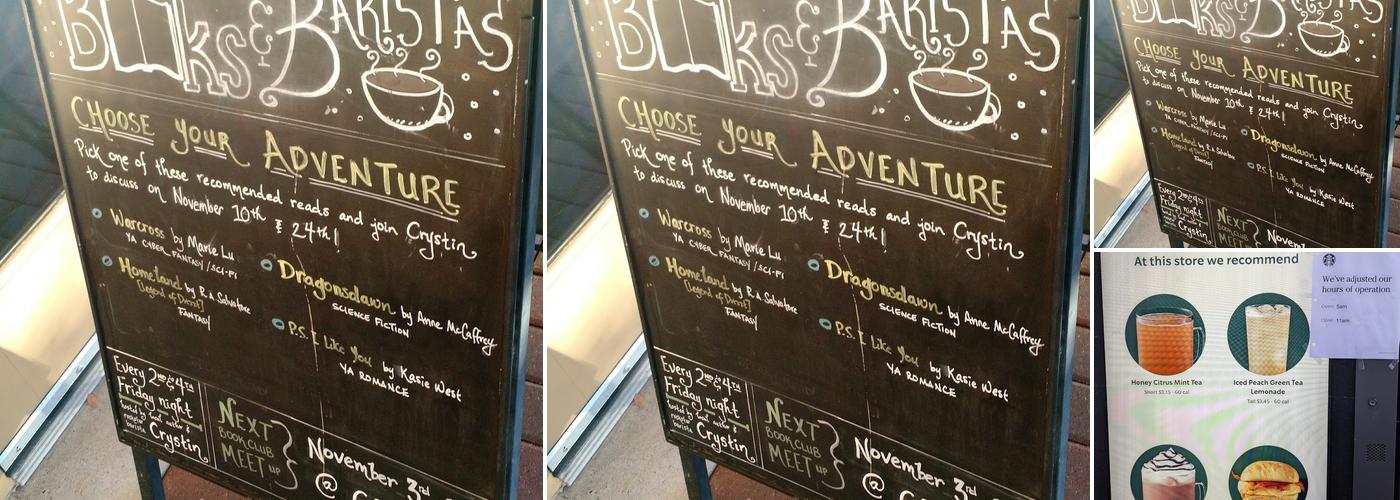 BOOKS & BARISTAS
CHOOSE YOUR ADVENTURE
Pick one of these recommended reads and join Crystin
to discuss on November 10th & 24th!
Warcross by Marie Lu
YA CYBER FANTASY/SCI-FI
Homeland by R.A Salvatore
[Legend of Drizzt]
FANTASY
Dragonsdawn by Anne McCaffrey
SCIENCE FICTION
P.S. I Like You by Kasie West
YA ROMANCE
Every 2nd & 4th
Friday night
hosted by local author &
barista
Crystin
NEXT
BOOK CLUB
MEET up
November 3rd
@
BOOKS & BARISTAS
CHOOSE YOUR ADVENTURE
Pick one of these recommended reads and join Crystin
to discuss on November 10th & 24th!
Warcross by Marie Lu
YA CYBER FANTASY/SCI-FI
Homeland by R.A Salvatore
[Legend of Drizzt]
FANTASY
Dragonsdawn by Anne McCaffrey
SCIENCE FICTION
P.S. I Like You by Kasie West
YA ROMANCE
Every 2nd & 4th
Friday night
hosted by local author &
barista
Crystin
NEXT
BOOK CLUB
MEET up
November 3rd
@
CHOOSE YOUR ADVENTURE
Pick one of these recommended reads and join Crystin
to discuss on November 10th & 24th!
Warcross by Marie Lu
YA CYBER FANTASY/SCI-FI
Homeland by R.A Salvatore
[Legend of Drizzt]
FANTASY
Dragonsdawn by Anne McCaffrey
SCIENCE FICTION
P.S. I Like You by Kasie West
YA ROMANCE
Every 2nd & 4th
Friday night
Crystin
NEXT
BOOK CLUB
MEET up
At this store we recommend
We've adjusted our
hours of operation
Open: 5am
Close: 11am
Honey Citrus Mint Tea
Short $3.15 · 60 cal
Iced Peach Green Tea
Lemonade
Tall $3.45 · 60 cal